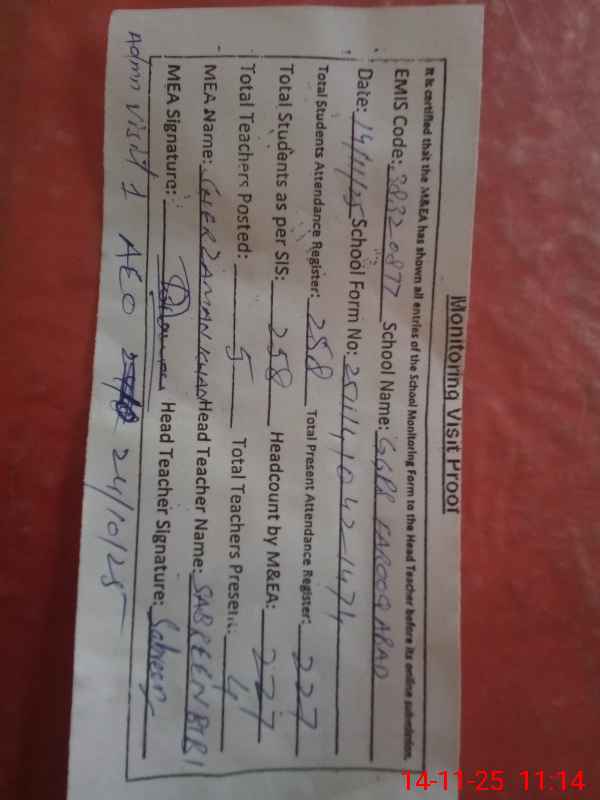 Monitoring Visit Proof
It is certified that the M&EA has shown all entries of the School Monitoring Form to the Head Teacher before its online submission.
EMIS Code: 38320877 School Name: GGPS FAROOQ ABAD
Date: 14/11/25 School Form No: 2511141042-1474
Total Students Attendance Register: 258 Total Present Attendance Register: 227
Total Students as per SIS: 258 Headcount by M&EA: 227
Total Teachers Posted: 5 Total Teachers Present: 4
MEA Name: SHERZAMAN KHAN Head Teacher Name: SABREEN BIBI
MEA Signature: Head Teacher Signature: Sabreen
Admn visit 1 AEO 24/10/25
14-11-25 11:14